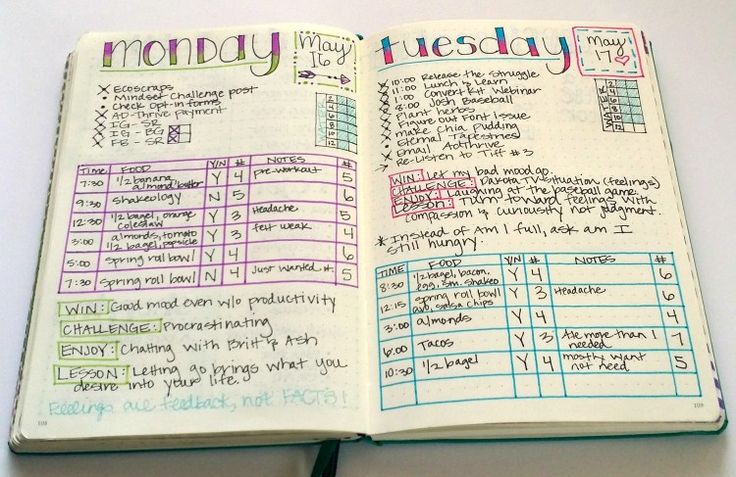 monday
May
16
× Ecoscraps
• Mindset Challenge post
• Check opt-in forms
× AD-Thrive payment
× IG - SR
× IG - BG
× FB - SR
WATER
2
4
6
8
10
12
TIME FOOD Y/N # NOTES #
7:30 1/2 banana, almond butter Y 4 pre-workout 5
9:30 shakeology N 5 6
12:30 1/2 bagel, orange coleslaw Y 3 Headache 5
3:00 almonds, tomato 1/2 bagel, popsicle Y 3 felt weak 4
5:00 spring roll bowl Y 4 6
7:30 spring roll bowl N 4 Just wanted it. 5
WIN: Good mood even w/o productivity
CHALLENGE: Procrastinating
ENJOY: Chatting with Britt & Ash
LESSON: Letting go brings what you
desire into your life.
Feelings are feedback, not FACTS!
108
tuesday
May
17
× 10:00 Release the Struggle
× 11:00 Lunch & Learn
× 1:00 ConvertKit Webinar
× 8:00 Josh Baseball
× Plant herbs
× Figure out Font Issue
× make chia pudding
• Eternal Tapestries
× Email AdThrive
> Re-Listen to Tiff #3
WATER
2
4
6
8
10
12
WIN: Let my bad mood go.
CHALLENGE: Dakota TV situation (feelings)
ENJOY: Laughing at the baseball game.
LESSON: Turn toward feelings with
compassion & curiousity not judgment.
* Instead of Am I full, ask am I
still hungry.
TIME FOOD Y/N # NOTES #
8:30 1/2 bagel, bacon, egg, sm. shakeo Y 4 6
12:15 spring roll bowl avo, salsa chips Y 3 Headache 6
3:00 almonds Y 4 4
6:00 Tacos Y 3 Ate more than I needed 7
10:30 1/2 bagel Y 4 mostly want not need 5
109